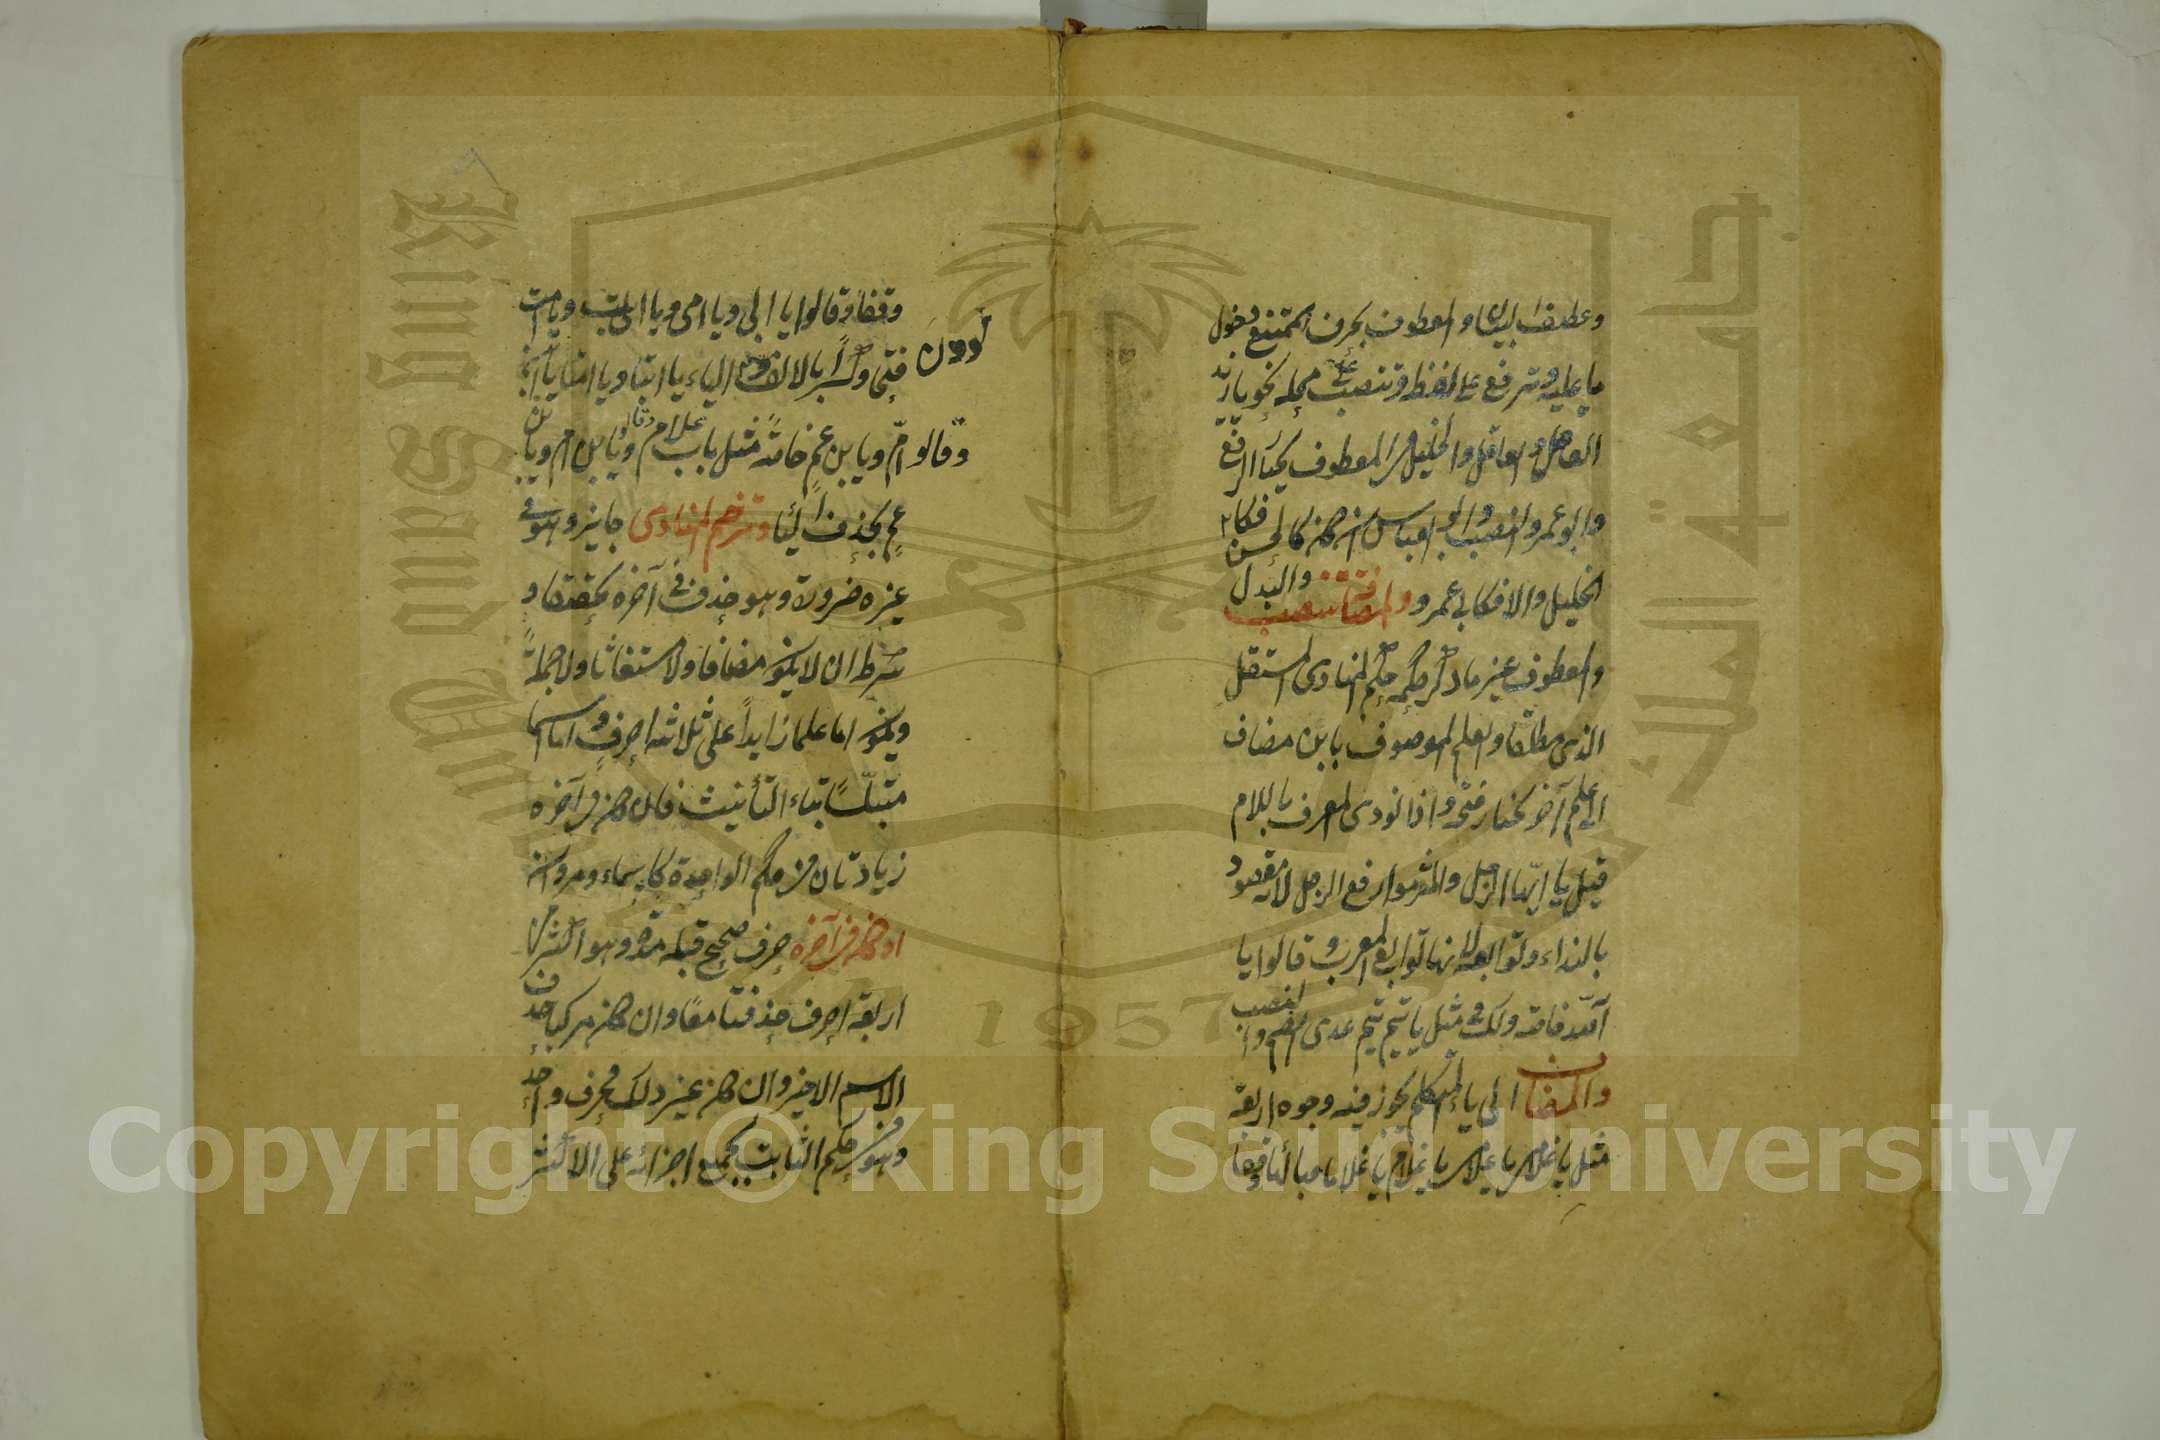 وعطف البيان والمعطوف بحرف الممتنع دخول
يا عليه وترفع على لفظه وتنصب على محله نحو يا زيد
العاقل والعاقل والخليل في المعطوف يختار الرفع
وابو عمرو النصب وابو العباس ان كان كالحسن فكا
الخليل والا فكابي عمرو والمضافة تنصب والبدل
والمعطوف غير ما ذكر حكمه حكم المنادى المستقل
الذى مطلقا والعلم الموصوف بابن مضاف
الى علم آخر يختار فتحه واذا نودى المعرف باللام
قيل يا ايها الرجل والتزموا رفع الرجل لانه مقصود
بالنداء وتوابعه لانها توابع المعرب وقالوا يا
الله خاصة ولك في مثل يا تيم تيم عدى الضم والنصب
والمضاف الى ياء المتكلم يجوز فيه وجوه اربعة
مثل يا غلامي يا غلامي يا غلام يا غلاما وبالهاء وقفا
وقفا وقالوا يا ابي ويا امي ويا ابت ويا امت
فتحا وكسرا وبالالف دون الياء يا ابتا ويا امتا
دون
وقالوا يا بن ام ويا بن عم خاصة مثل باب غلام وقالوا يا بن ام ويا بن
عم بحذف الياء وترخيم المنادى جايز وهو في
غيره ضرورة وهو حذف في آخره تخفيفا و
شرط ان لا يكون مضافا ولا مستغاثا ولا جملة
ويكون اما علما زايدا على ثلاثة احرف واما اسما
متلبسا بتاء التأنيث فان كان في آخره
زيادتان في حكم الواحدة كاسماء ومروان
او كان في آخره حرف صحيح قبله مدة وهو اكثر من
اربعة احرف حذفتا معا وان كان مركبا حذف
الاسم الاخير وان كان غير ذلك فحرف واحد
وهو في حكم الثابت بجميع اجزائه على الاكثر
King Saud University
جامعة الملك
1957
Copyright © King Saud University